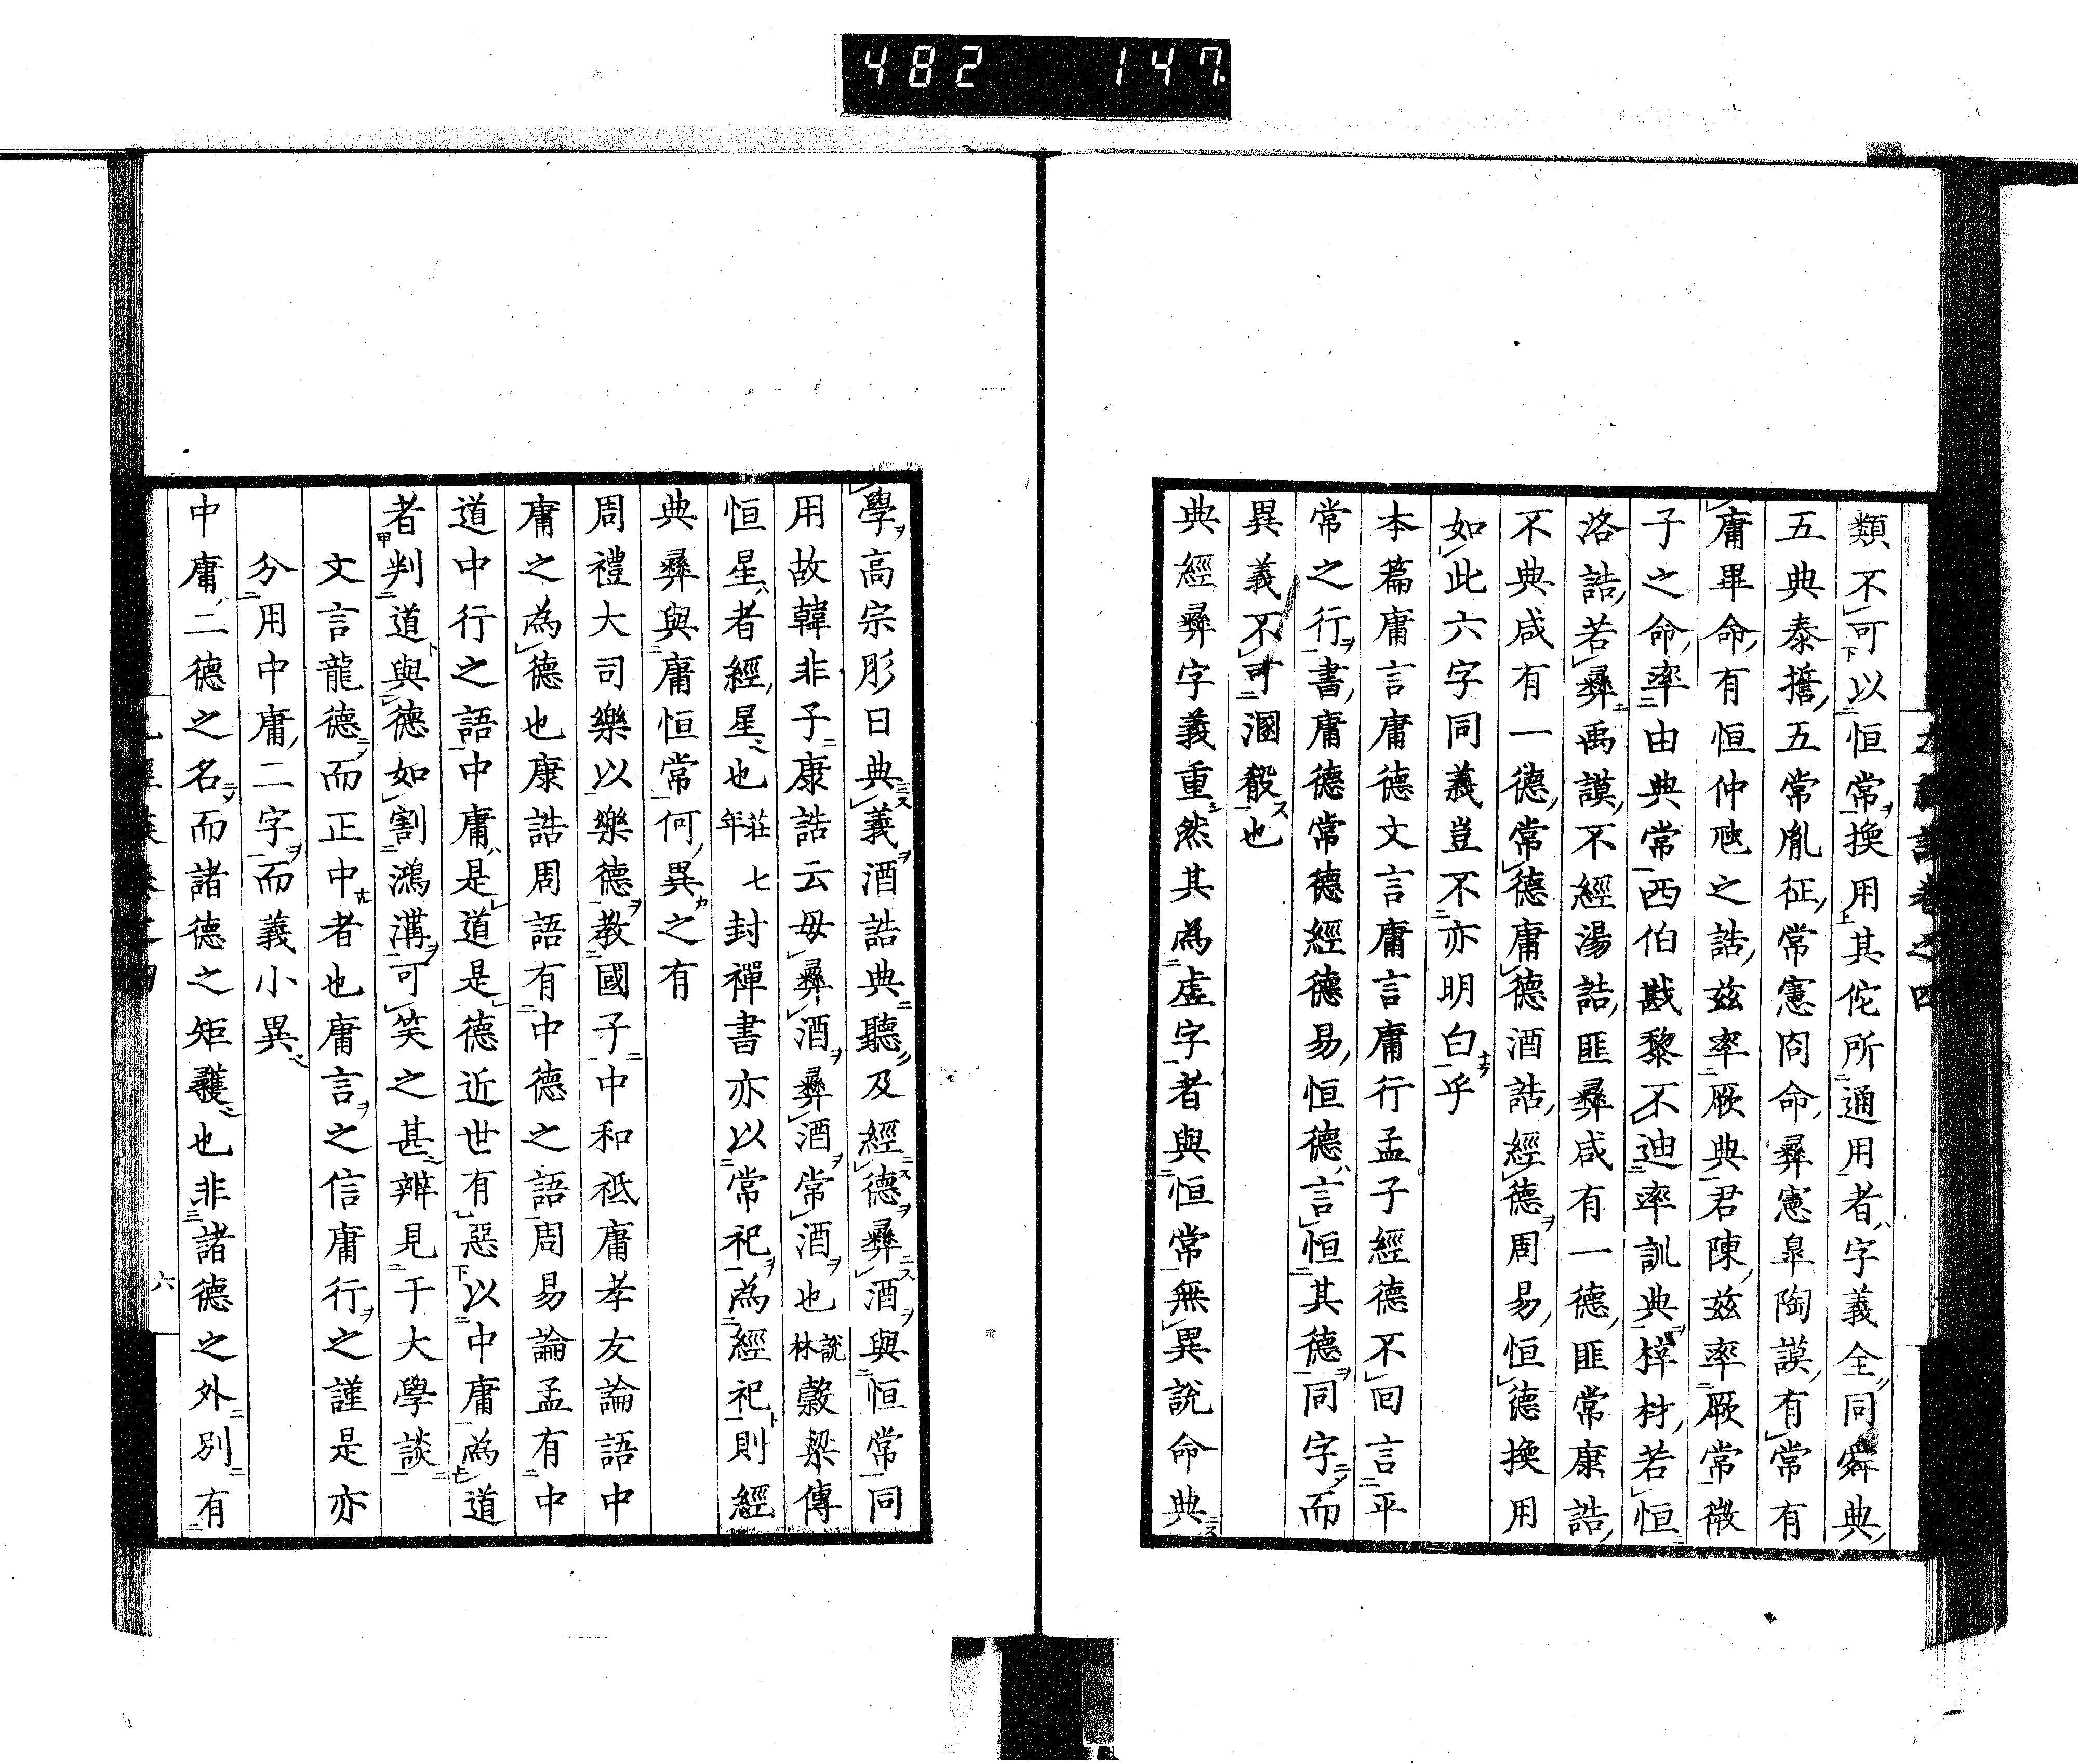 482 147
類不可以恒常換用其佗所通用者字義全同舜典
五典泰誓五常胤征常憲冏命彝憲皐陶謨有常有
庸畢命有恒仲虺之誥茲率厥典君陳茲率厥常微
子之命率由典常西伯戡黎不迪率訓典梓材若恒
洛誥若彝禹謨不經湯誥匪彝咸有一德匪常康誥
不典咸有一德常德庸德酒誥經德周易恒德換用
如此六字同義豈不亦明白乎
本篇庸言庸德文言庸言庸行孟子經德不回言平
常之行書庸德常德經德易恒德言恒其德同字而
異義不可溷殽也
典經彝字義重然其爲虛字者與恒常無異說命典
學高宗肜日典義酒誥典聽及經德彝酒與恒常同
用故韓非子康誥云毋彝酒彝酒常酒也說林穀梁傳
恒星者經星也莊七年封禪書亦以常祀爲經祀則經
典彝與庸恒常何異之有
周禮大司樂以樂德教國子中和祗庸孝友論語中
庸之爲德也康誥周語有中德之語周易論孟有中
道中行之語中庸是道是德近世有惡以中庸爲道
者判道與德如割鴻溝可笑之甚辨見于大學談
文言龍德而正中者也庸言之信庸行之謹是亦
分用中庸二字而義小異
中庸二德之名而諸德之矩矱也非諸德之外別有
六